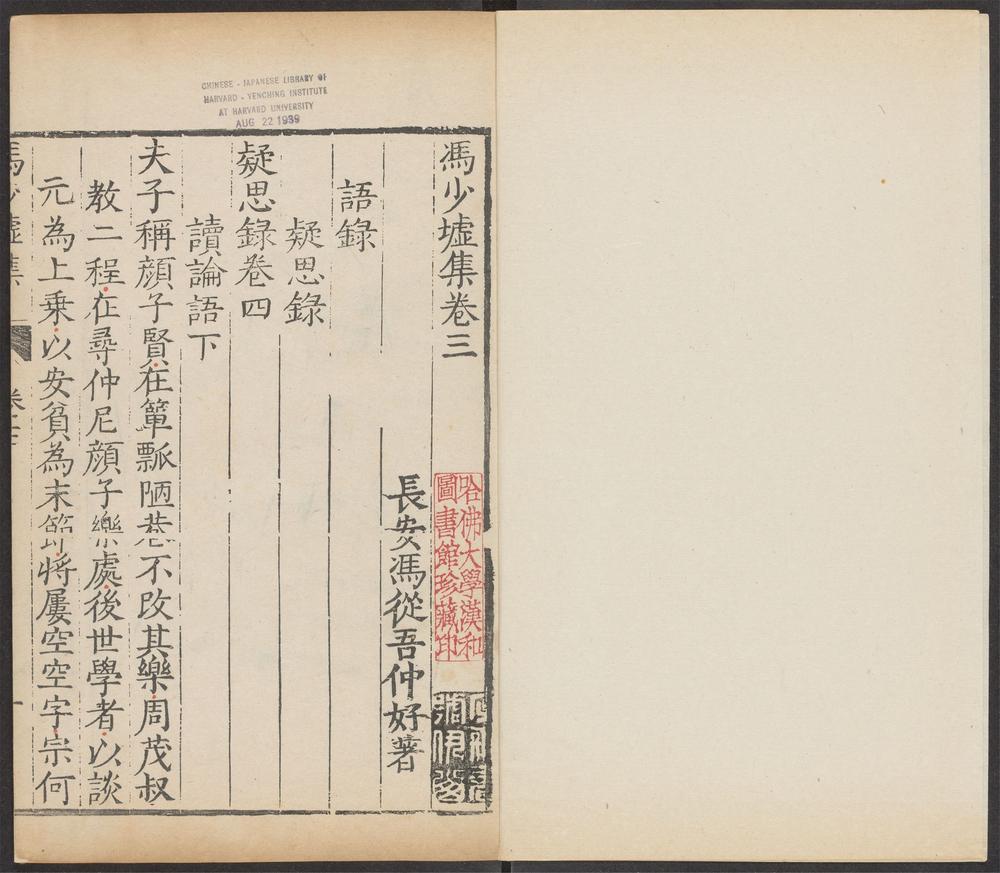 CHINESE - JAPANESE LIBRARY OF
HARVARD - YENCHING INSTITUTE
AT HARVARD UNIVERSITY
AUG 22 1939
馮少墟集卷三
哈佛大學漢和
圖書館珍藏印
長安馮從吾仲好著
語錄
疑思錄
疑思錄卷四
讀論語下
夫子稱顏子賢在簞瓢陋巷不改其樂周茂叔
教二程在尋仲尼顏子樂處後世學者以談
元為上乘以安貧為末節將屢空空字宗何
馮少墟集